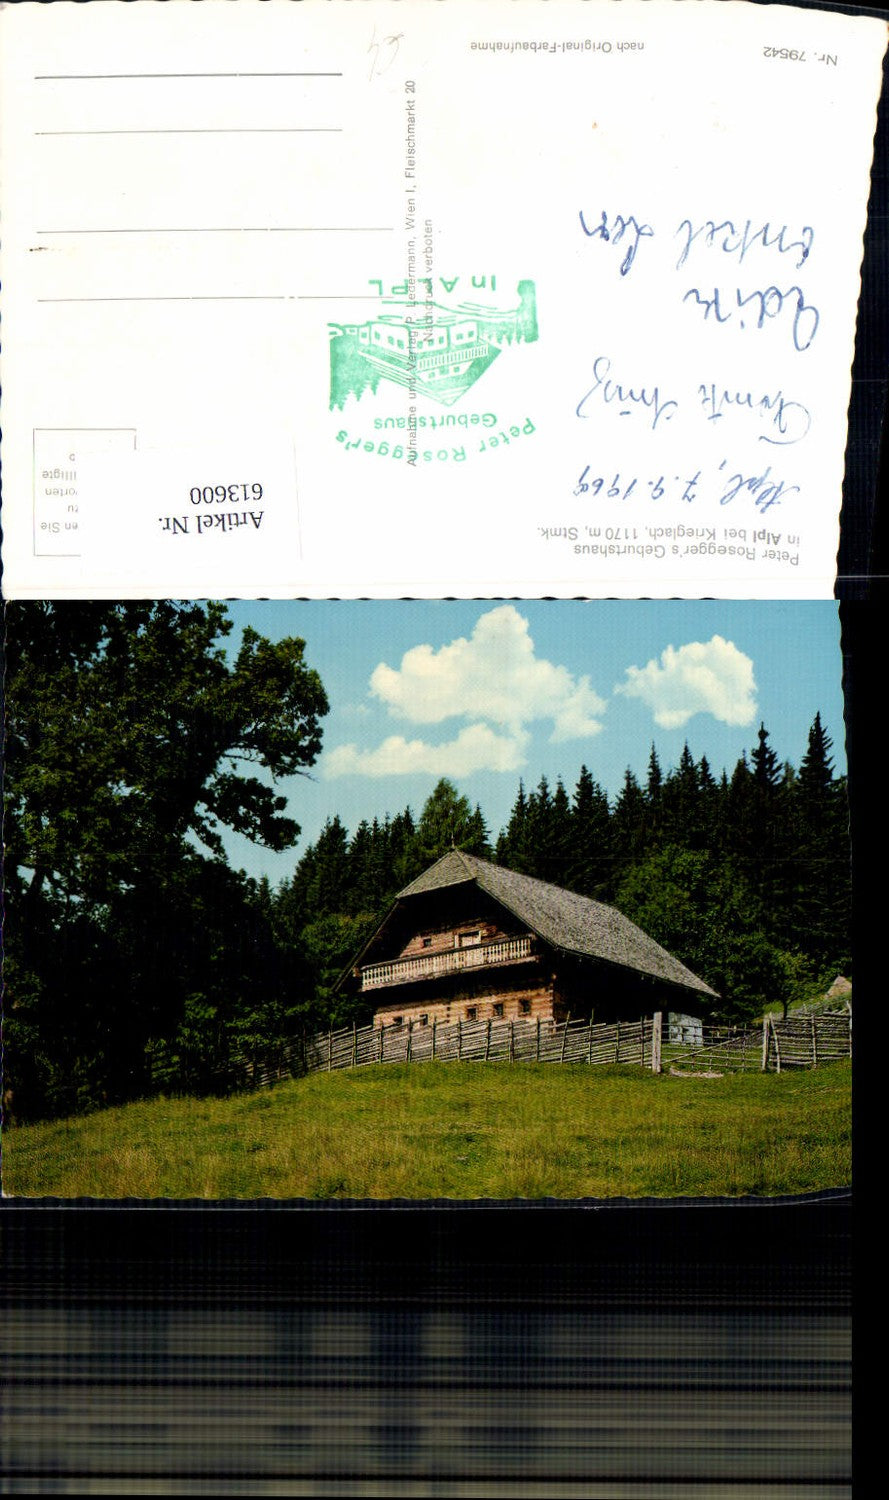 Peter Rosegger's Geburtshaus
in Alpl bei Krieglach, 1170 m, Stmk.
Alpl, 7.9.1969
Edith
Onkel
Nr. 79542
nach Original-Farbaufnahme
Aufnahme und Verlag P. Ledermann, Wien I, Fleischmarkt 20
Nachdruck verboten
Peter Rosegger's
Geburtshaus
In ALPL
Artikel Nr.
613600
en Sie
tu
orten
illigte
64